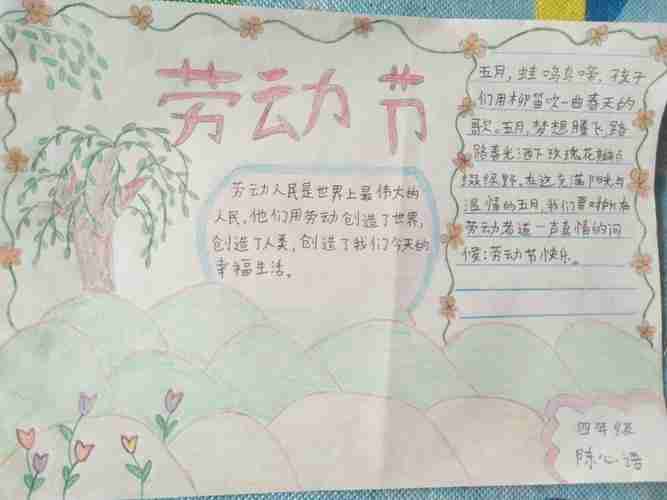 劳动节
劳动人民是世界上最伟大的
人民,他们用劳动创造了世界,
创造了人类,创造了我们今天的
幸福生活。
五月,蛙鸣鸟啼,孩子
们用柳笛吹一曲春天的
歌。五月,梦想腾飞,路
路春光洒下玫瑰花瓣点
缀绿野,在这充满阳光与
温情的五月,我们要对所有
劳动者道一声真情的问
候:劳动节快乐。
四年级
陈心语